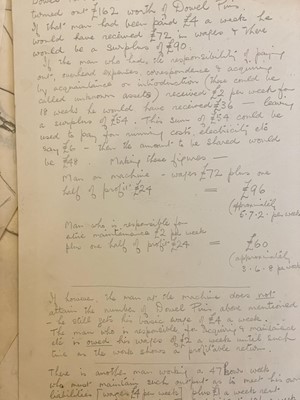 turned out £162 worth of Dowel Pins.
If that man had been paid £4 a week he
would have received £72 in wages & there
would be a surplus of £90.
If the man who had the responsibility of paying
out, overhead expenses, correspondence & acquiring
by acquaintance or introduction (these could be
called unknown assets) received £2 per week for
18 weeks he would have received £36 — leaving
a surplus of £54. This sum of £54 could be
used to pay for running costs, electricity etc
say £6 — then the amount to be shared would
be £48. Making these figures —
Man on machine - wages £72 plus one
half of profit £24 = £96
(approximately
5.7.2. per week
Man who is responsible for
active maintenance £2 per week
plus one half of profit £24 = £60
(approximately
3.6.8 per week
If however, the man at the machine does not
attain the number of Dowel Pins above mentioned
- he still gets his basic wage of £4 a week.
The man who is responsible for acquiring & maintaining
etc is owed his wages of £2 a week until such
time as the work shows a profitable return.
There is another man working a 47 hour week
who must maintain such output as to meet his own
liabilities (wages £4 per week) plus £1 a week rent